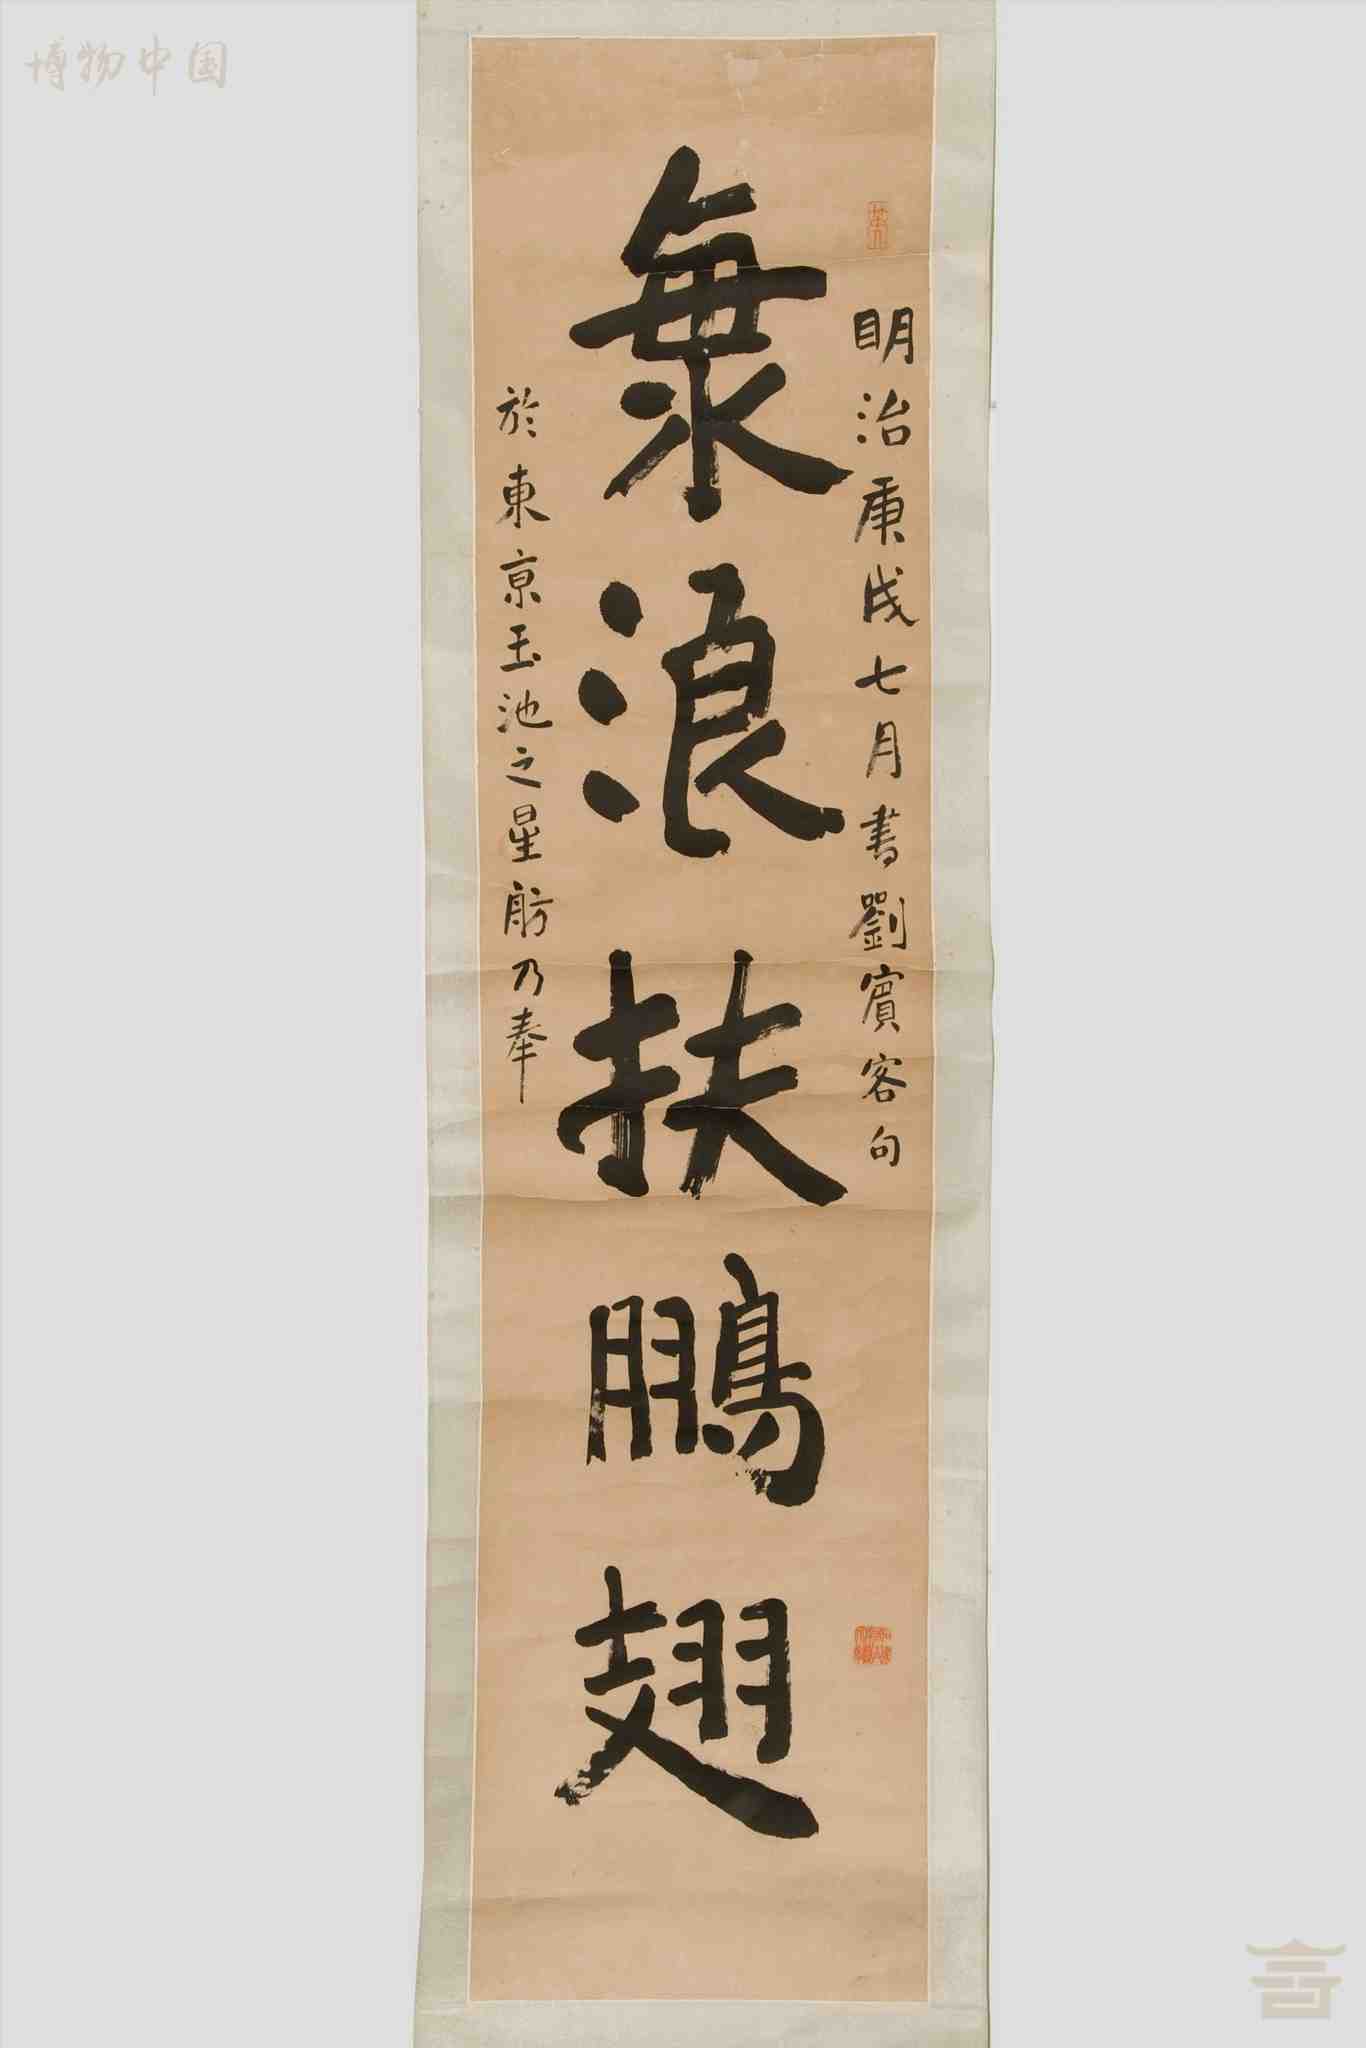 博物中国
明治庚戌七月書劉賓客句
浪扶鵬翅
於東京玉池之星舫乃奉